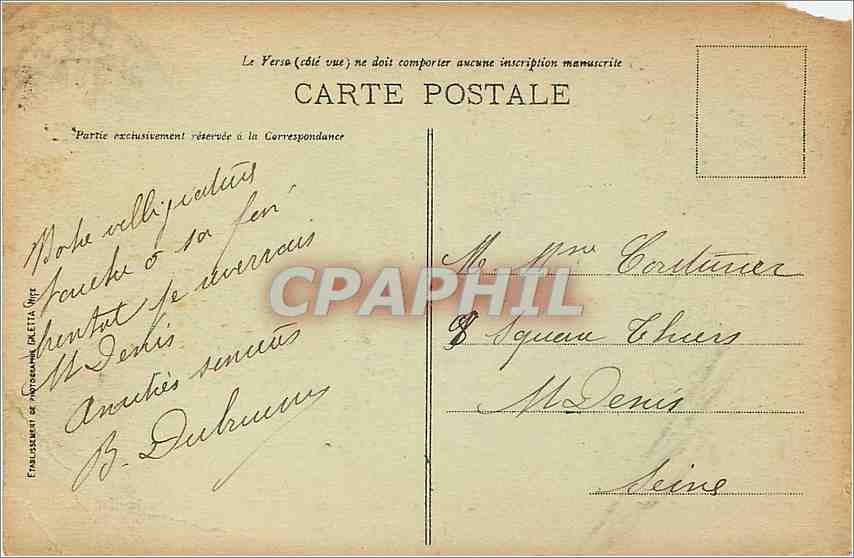 Le Verso (côté vue) ne doit comporter aucune inscription manuscrite
CARTE POSTALE
Partie exclusivement réservée à la Correspondance
Notre villégiature
touche à sa fin
bientot je reverrais
St Denis
Amitiés sincères
B.
M. Mme Couturier
8 Square Thiers
St Denis
Seine
ETABLISSEMENT DE PHOTOGRAPHIE GILETTA NICE
CPAPHIL